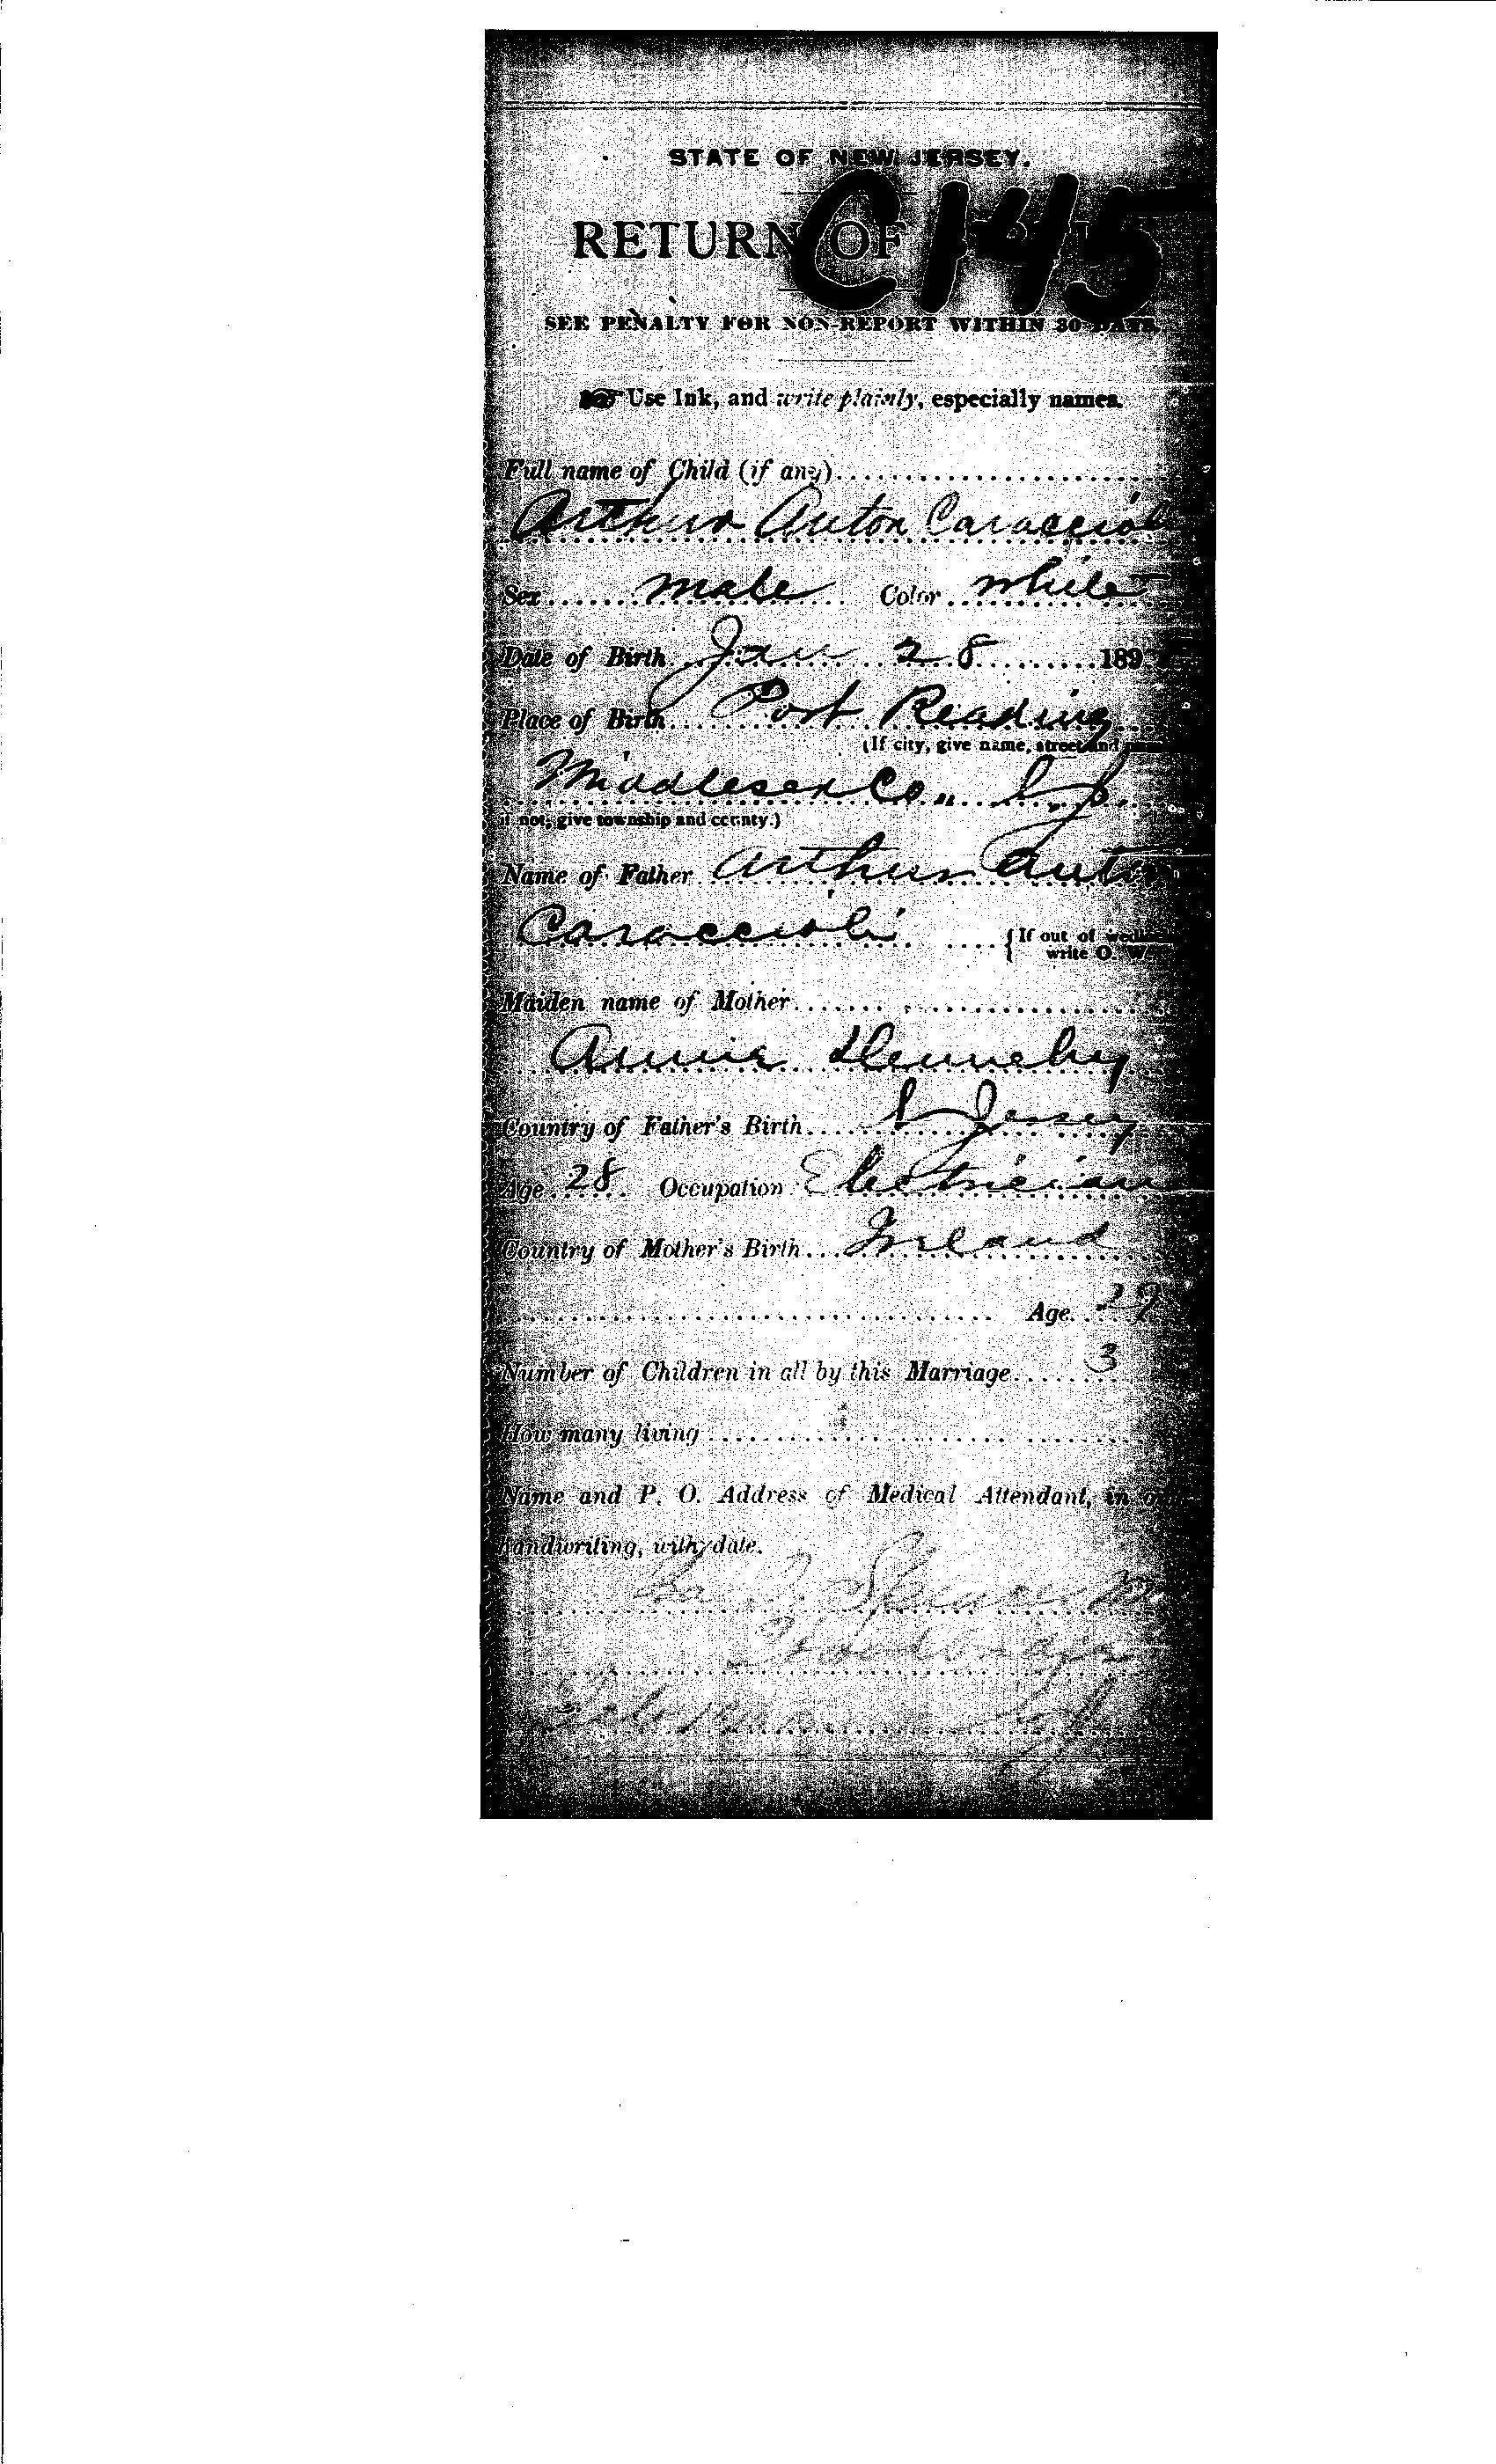 STATE OF NEW JERSEY.
C145
RETURN OF
SEE PENALTY FOR NON-REPORT WITHIN 30 DAYS.
Use Ink, and write plainly, especially names.
Full name of Child (if any)
Arthur Anton Caraccioli
Sex male Color white
Date of Birth Jan 28 189
Place of Birth Port Reading
(If city, give name, street and
Middlesex Co., N. J.
if not, give township and county.)
Name of Father Arthur Anton
Caraccioli {If out of wedlock
write O. W.
Maiden name of Mother
Annie Hennehy
Country of Father's Birth N Jersey
Age 28 Occupation Electrician
Country of Mother's Birth Ireland
Age 29
Number of Children in all by this Marriage 3
How many living
Name and P. O. Address of Medical Attendant, in own
handwriting, with date.